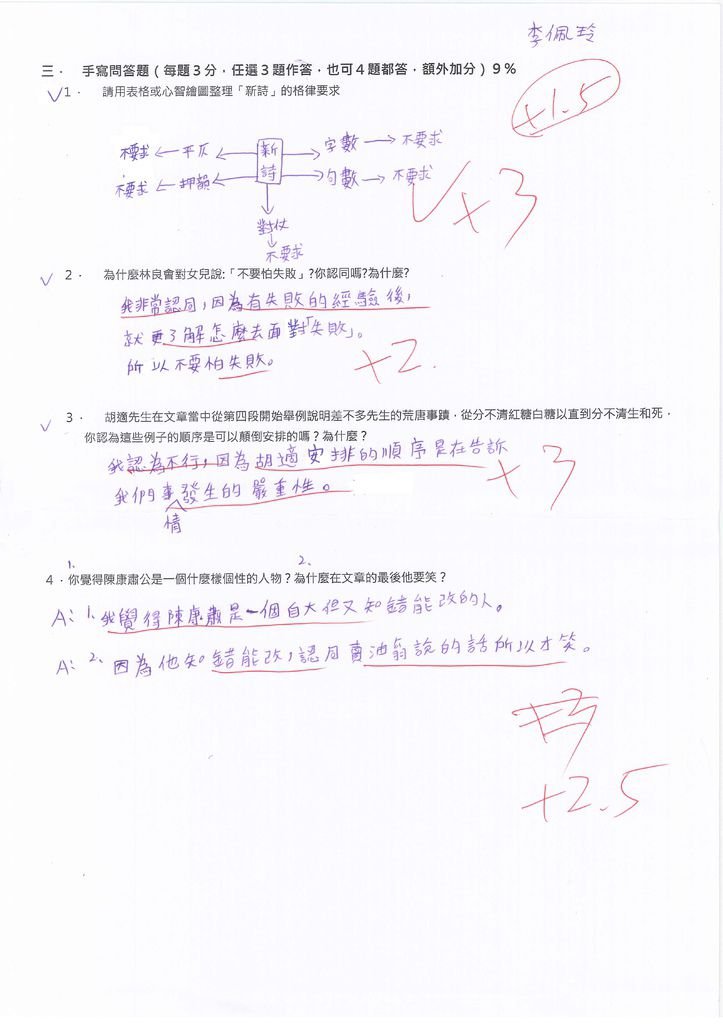 李佩玲
三. 手寫問答題(每題3分,任選3題作答,也可4題都答,額外加分)9%
+1.5
✓1. 請用表格或心智繪圖整理「新詩」的格律要求
不要求 ← 平仄 ← 新詩 → 字數 → 不要求
不要求 ← 押韻 ← → 句數 → 不要求
✓+3
對仗
↓
不要求
✓ 2. 為什麼林良會對女兒說:「不要怕失敗」?你認同嗎?為什麼?
我非常認同,因為有失敗的經驗後,
就更了解怎麼去面對「失敗」。
所以不要怕失敗。
+2.
✓ 3. 胡適先生在文章當中從第四段開始舉例說明差不多先生的荒唐事蹟,從分不清紅糖白糖以直到分不清生和死,
你認為這些例子的順序是可以顛倒安排的嗎?為什麼?
我認為不行,因為胡適安排的順序是在告訴
我們事情發生的嚴重性。
+3
1. 2.
4.你覺得陳康肅公是一個什麼樣個性的人物?為什麼在文章的最後他要笑?
A: 1.我覺得陳康肅是一個自大但又知錯能改的人。
A: 2.因為他知錯能改,認同賣油翁說的話所以才笑。
+3
+2.5